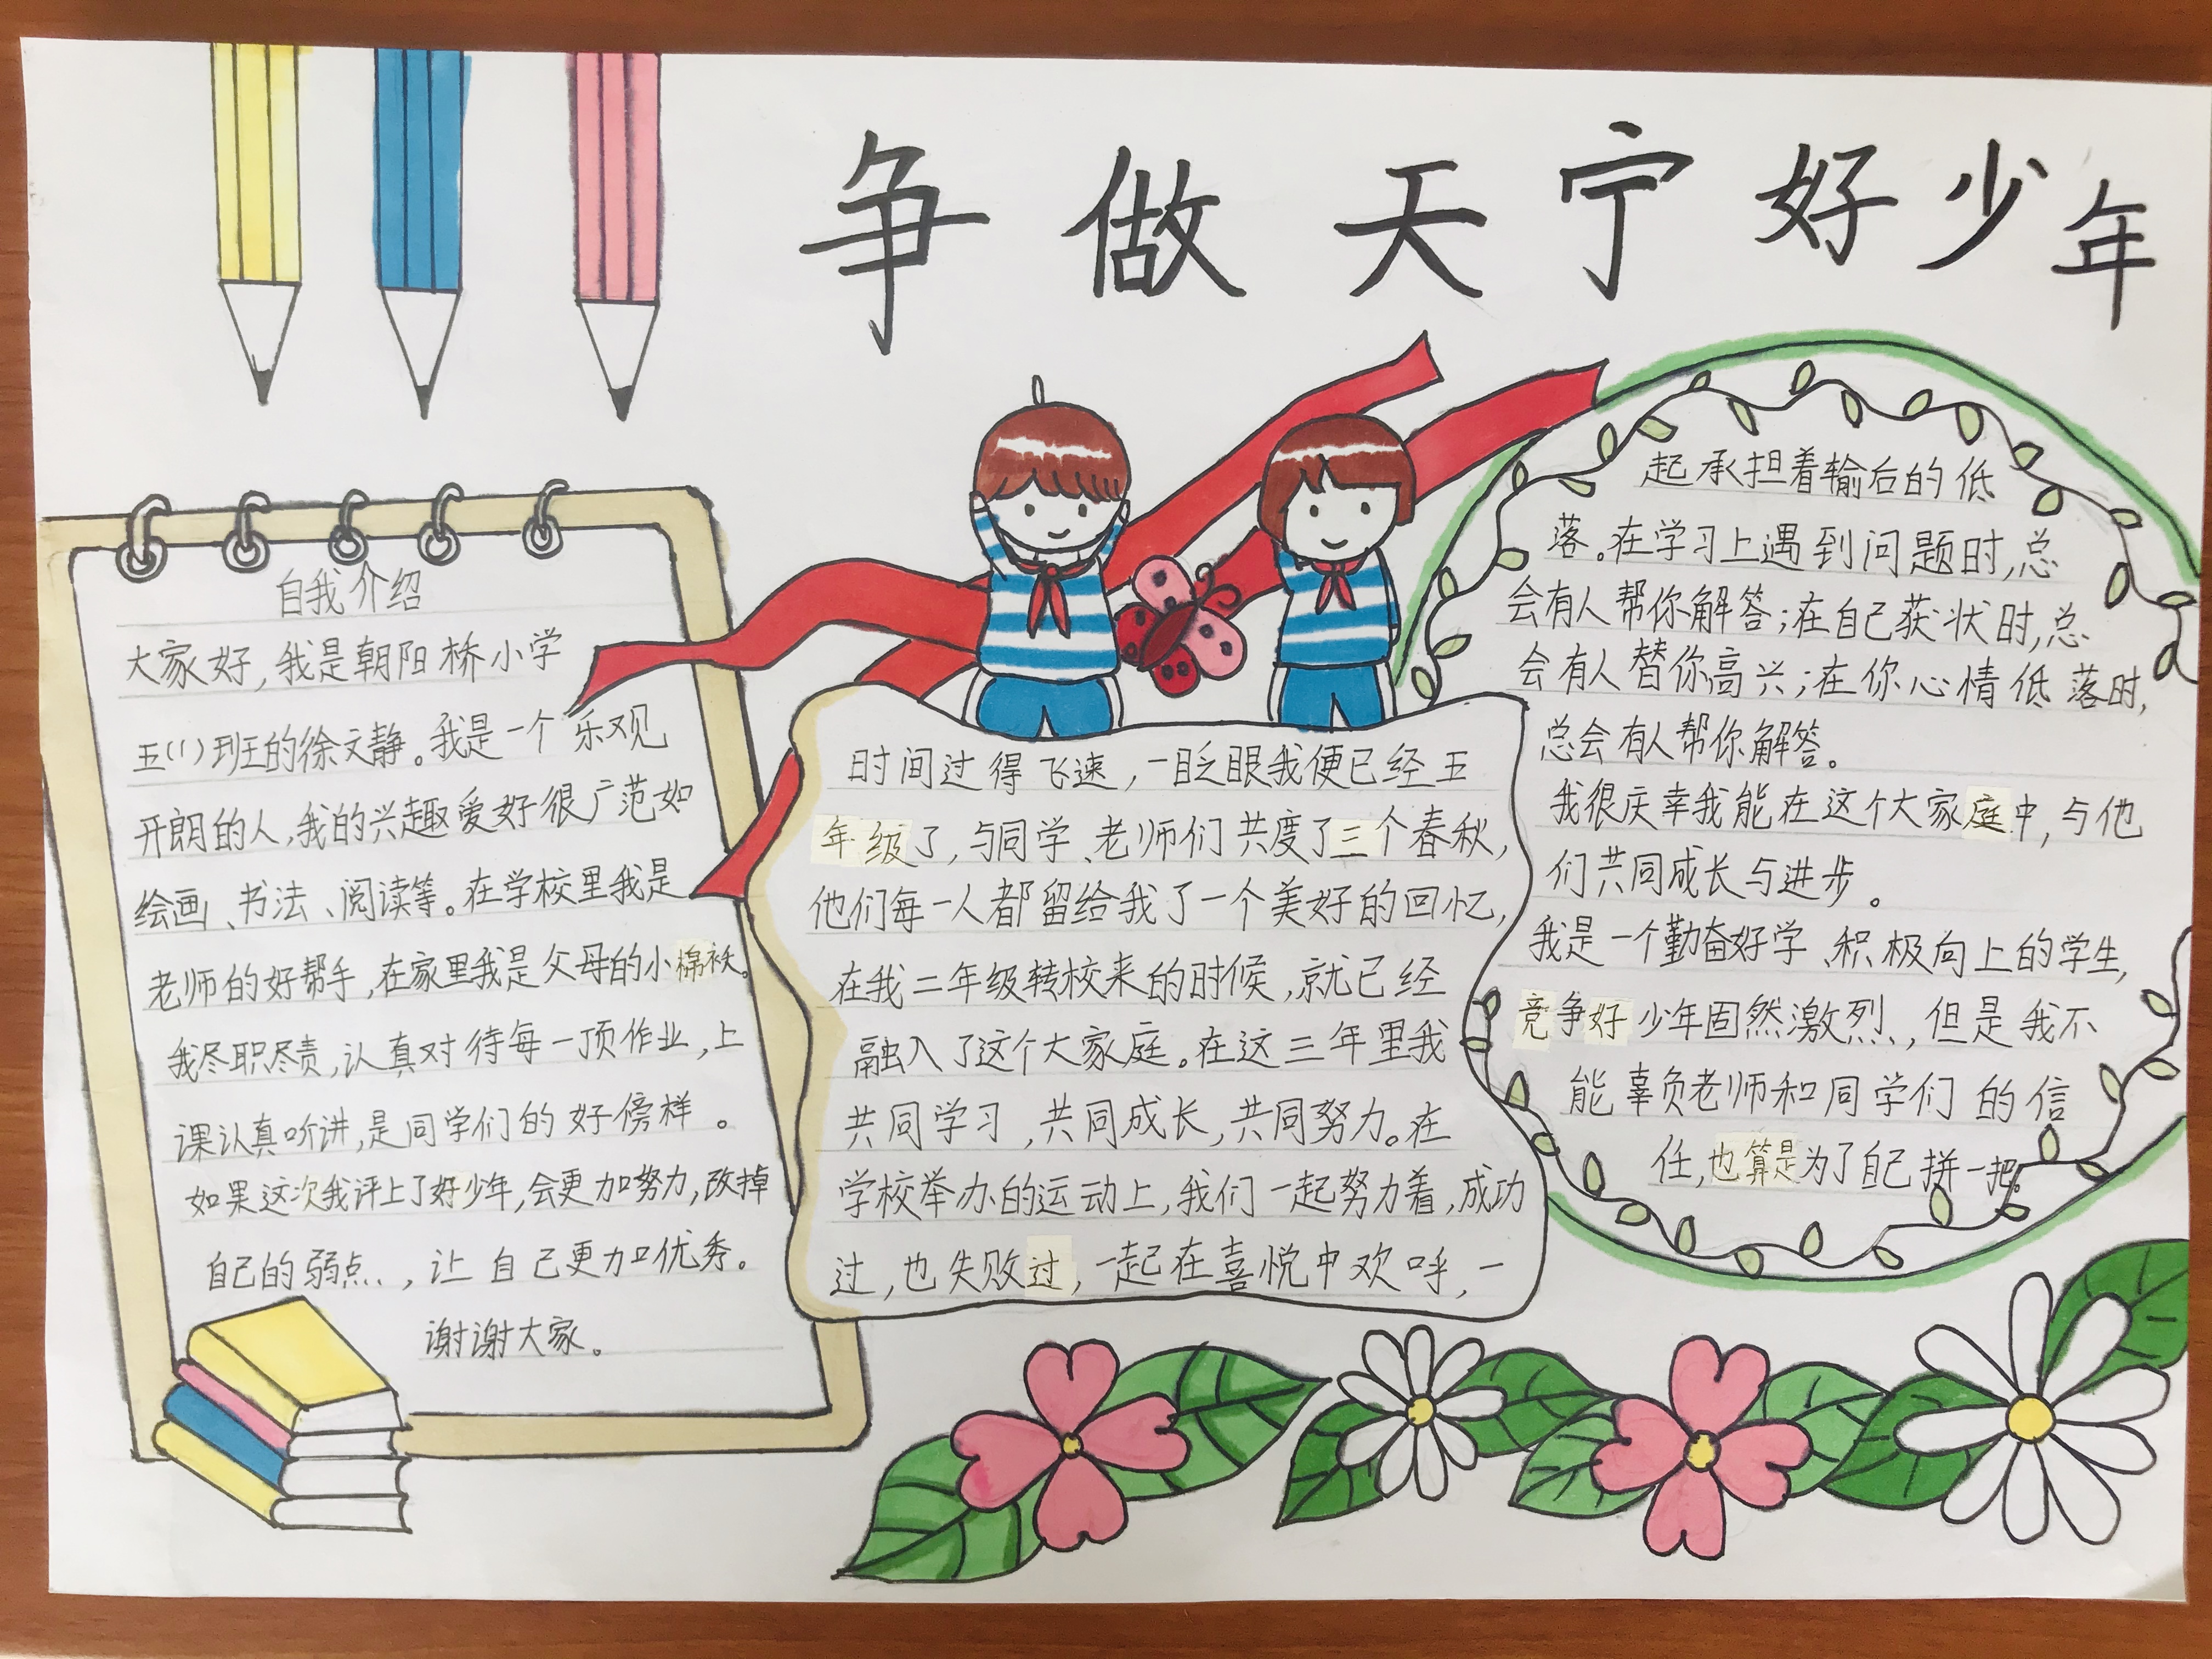 争做天宁好少年
自我介绍
大家好,我是朝阳桥小学
五(1)班的徐文静。我是一个乐观
开朗的人,我的兴趣爱好很广范如
绘画、书法、阅读等。在学校里我是
老师的好帮手,在家里我是父母的小棉袄。
我尽职尽责,认真对待每一项作业,上
课认真听讲,是同学们的好傍样。
如果这次我评上了好少年,会更加努力,改掉
自己的弱点,让自己更加优秀。
谢谢大家。
时间过得飞速,一眨眼我便已经五
年级了,与同学、老师们共度了三个春秋,
他们每一人都留给我了一个美好的回忆,
在我二年级转校来的时候,就已经
融入了这个大家庭。在这三年里我
共同学习,共同成长,共同努力。在
学校举办的运动上,我们一起努力着,成功
过,也失败过,一起在喜悦中欢呼,一
起承担着输后的低
落。在学习上遇到问题时,总
会有人帮你解答;在自己获状时,总
会有人替你高兴;在你心情低落时,
总会有人帮你解答。
我很庆幸我能在这个大家庭中,与他
们共同成长与进步。
我是一个勤奋好学、积极向上的学生,
竞争好少年固然激烈,但是我不
能辜负老师和同学们的信
任,也算是为了自己拼一把。